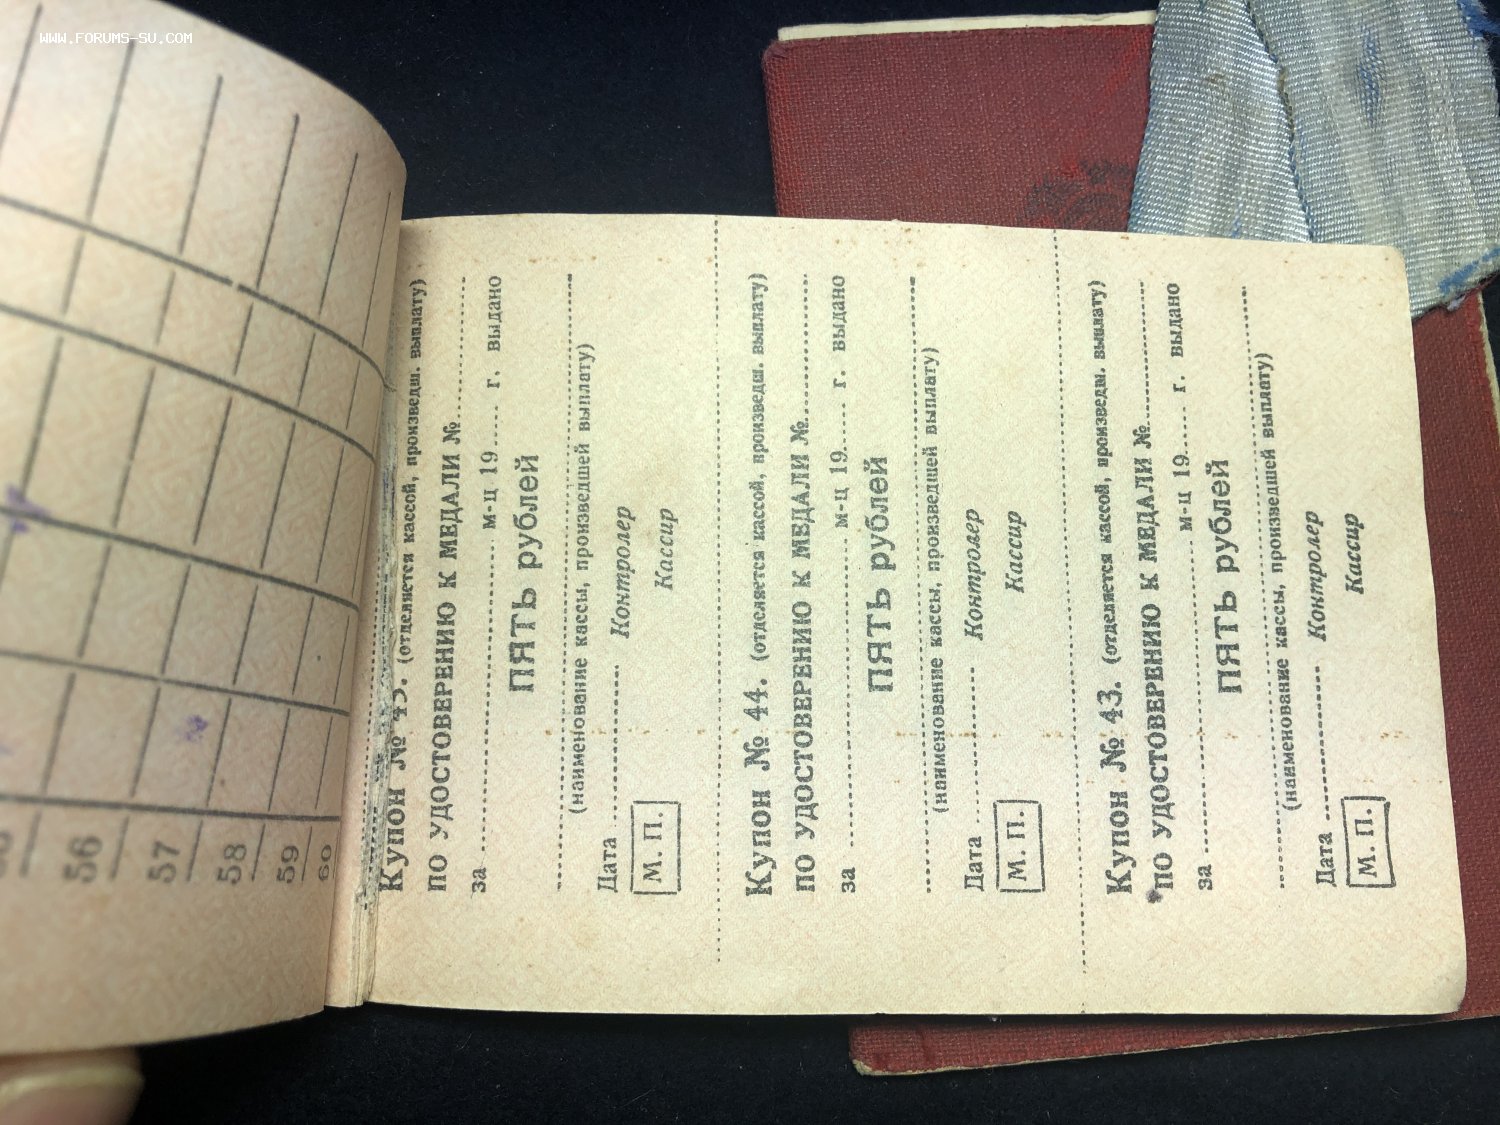 WWW.FORUMS-SU.COM
56
57
58
59
60
Купон № 45. (отделяется кассой, производш. выплату)
ПО УДОСТОВЕРЕНИЮ К МЕДАЛИ №
за м-ц 19 г. выдано
ПЯТЬ рублей
(наименование кассы, произведшей выплату)
Дата Контролер
М. П. Кассир
Купон № 44. (отделяется кассой, производш. выплату)
ПО УДОСТОВЕРЕНИЮ К МЕДАЛИ №
за м-ц 19 г. выдано
ПЯТЬ рублей
(наименование кассы, произведшей выплату)
Дата Контролер
М. П. Кассир
Купон № 43. (отделяется кассой, производш. выплату)
ПО УДОСТОВЕРЕНИЮ К МЕДАЛИ №
за м-ц 19 г. выдано
ПЯТЬ рублей
(наименование кассы, произведшей выплату)
Дата Контролер
М. П. Кассир